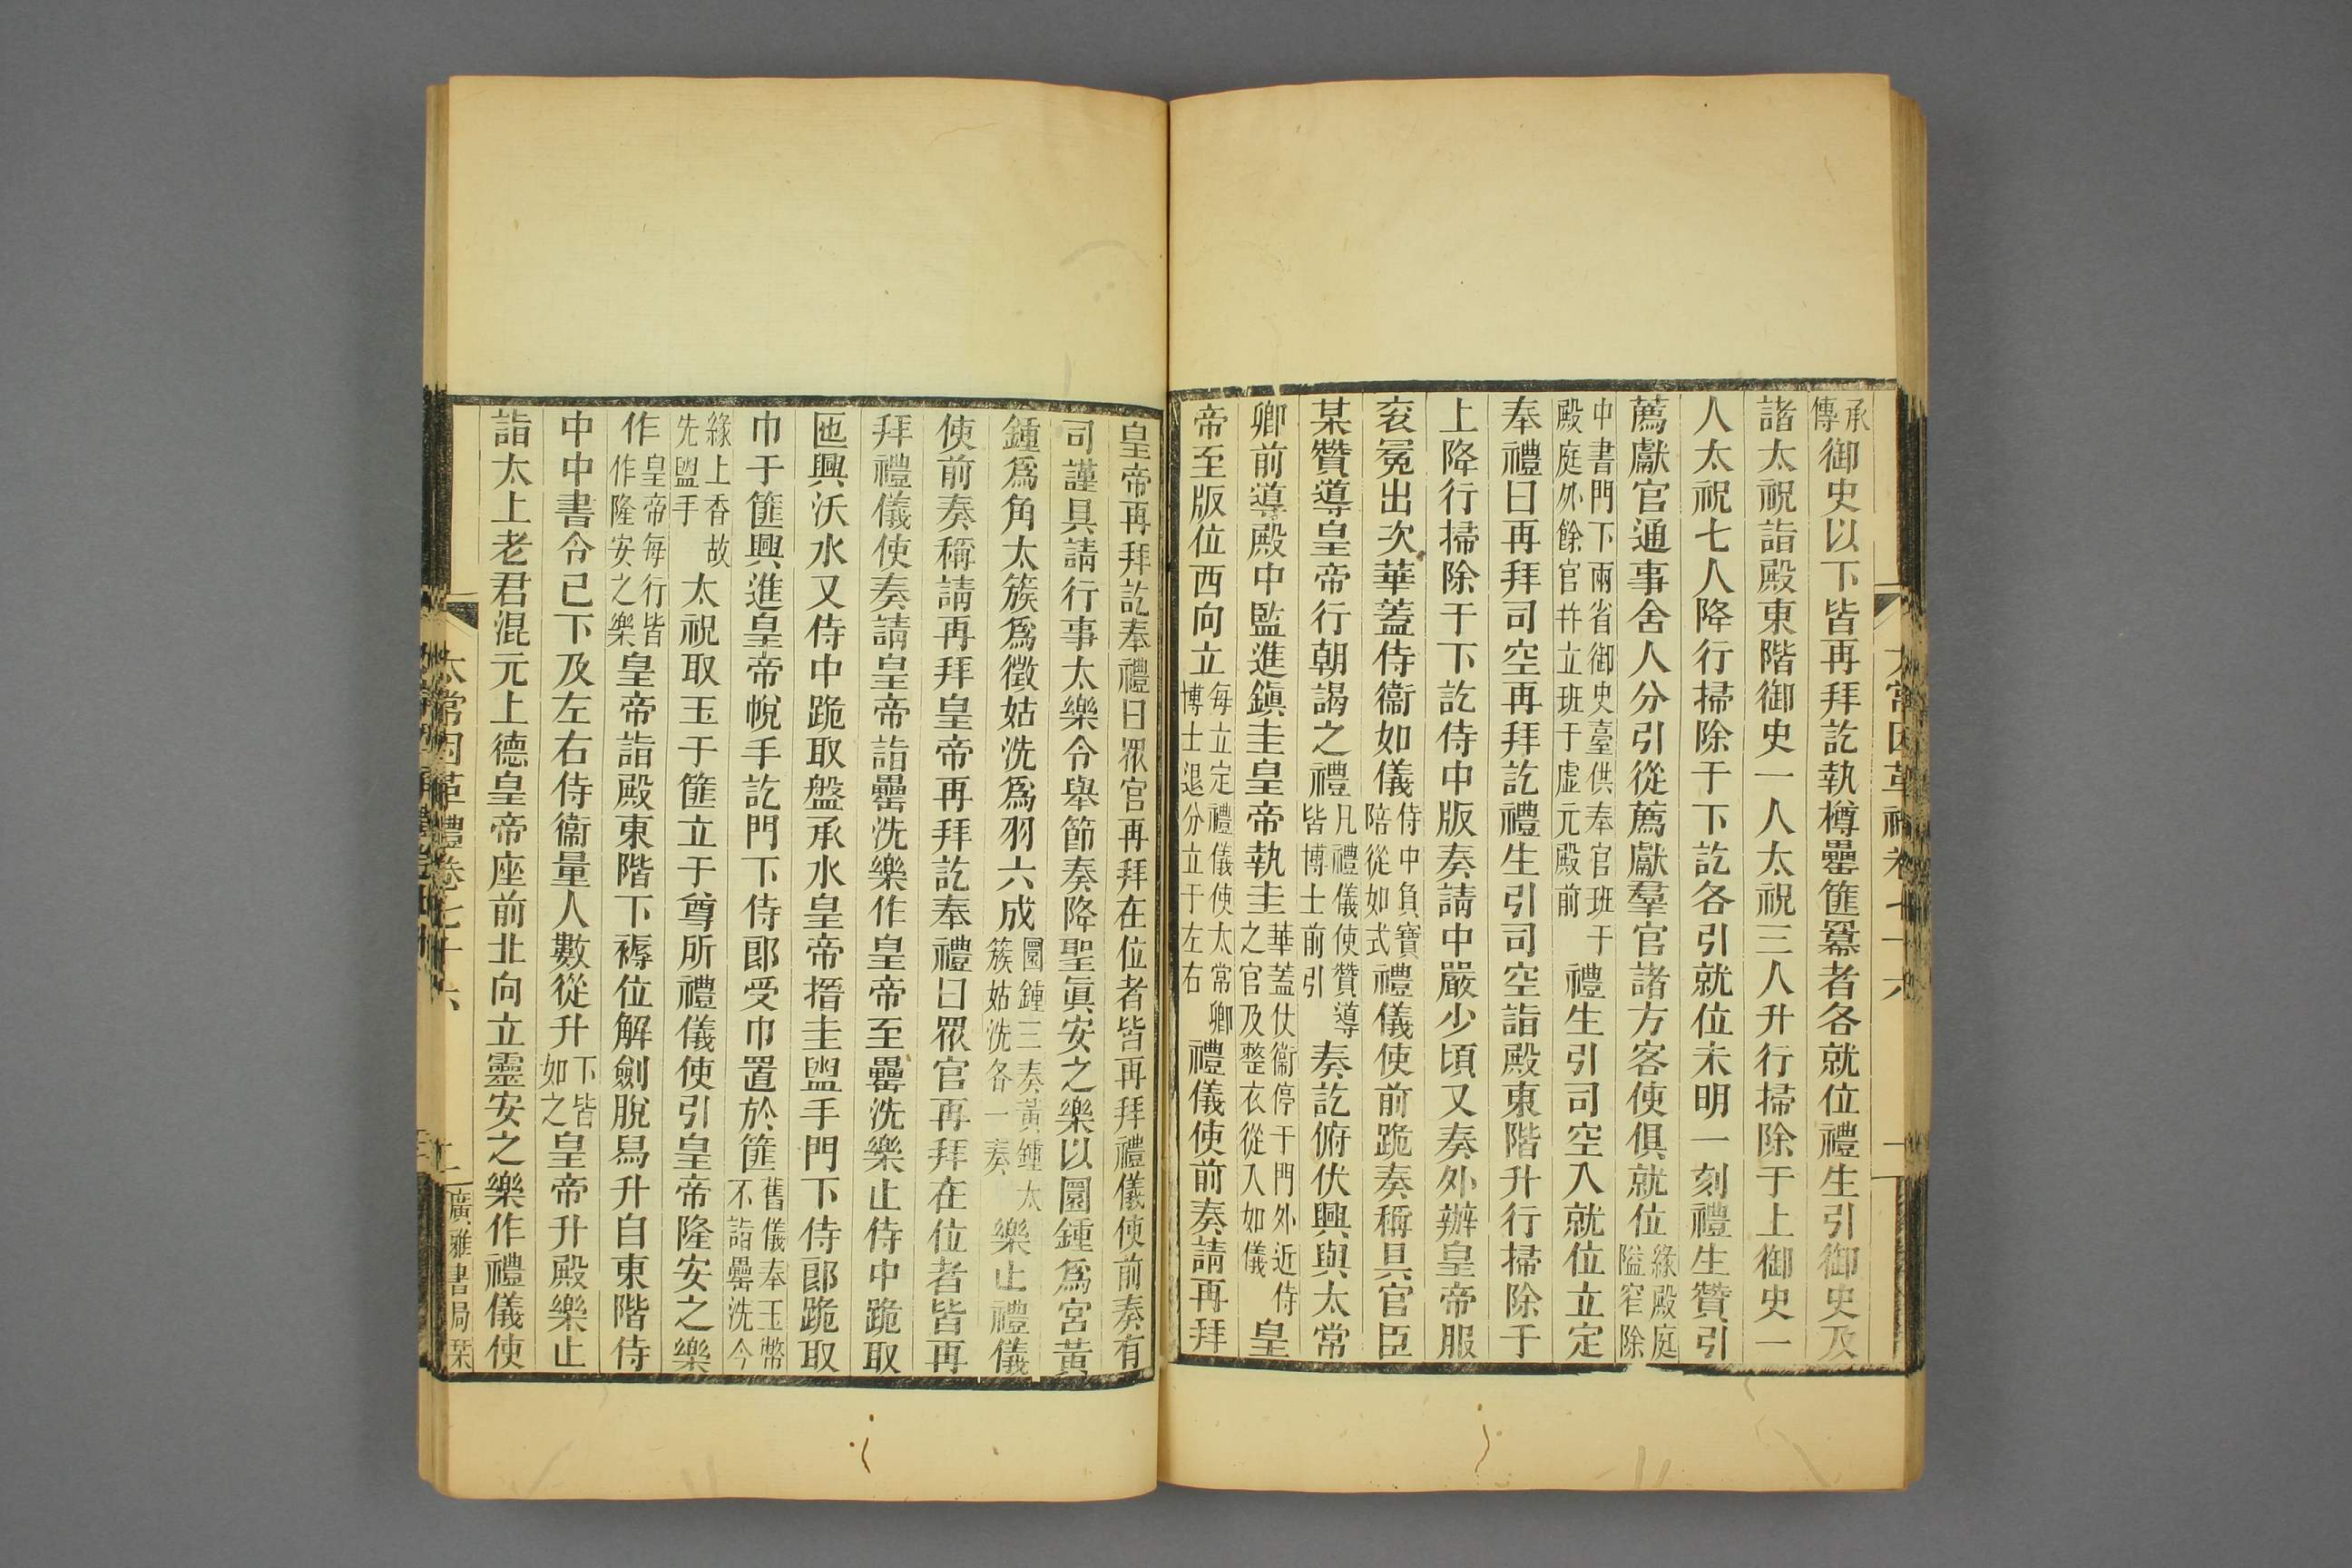 承傳御史以下皆再拜訖執樽罍篚羃者各就位禮生引御史及
諸太祝詣殿東階御史一人太祝三人升行掃除于上御史一
人太祝七人降行掃除于下訖各引就位未明一刻禮生贊引
薦獻官通事舍人分引從薦獻羣官諸方客使俱就位緣殿庭隘窄除
中書門下兩省御史臺供奉官班于殿庭外餘官幷立班于虛元殿前禮生引司空入就位立定
奉禮曰再拜司空再拜訖禮生引司空詣殿東階升行掃除于
上降行掃除于下訖侍中版奏請中嚴少頃又奏外辦皇帝服
衮冕出次華蓋侍衞如儀侍中負寶陪從如式禮儀使前跪奏稱具官臣
某贊導皇帝行朝謁之禮凡禮儀使贊導皆博士前引奏訖俯伏興與太常
卿前導殿中監進鎭圭皇帝執圭華蓋仗衞停于門外近侍之官及整衣從入如儀皇
帝至版位西向立每立定禮儀使太常卿博士退分立于左右禮儀使前奏請再拜
皇帝再拜訖奉禮曰眾官再拜在位者皆再拜禮儀使前奏有
司謹具請行事太樂令舉節奏降聖眞安之樂以圜鍾爲宮黃
鍾爲角太簇爲徵姑洗爲羽六成圜鍾三奏黃鍾太簇姑洗各一奏樂止禮儀
使前奏稱請再拜皇帝再拜訖奉禮曰眾官再拜在位者皆再
拜禮儀使奏請皇帝詣罍洗樂作皇帝至罍洗樂止侍中跪取
匜興沃水又侍中跪取盤承水皇帝搢圭盥手門下侍郎跪取
巾于篚興進皇帝帨手訖門下侍郎受巾置於篚舊儀奉玉幣不詣罍洗今
緣上香故先盥手太祝取玉于篚立于尊所禮儀使引皇帝隆安之樂
作皇帝每行皆作隆安之樂皇帝詣殿東階下褥位解劍脫舄升自東階侍
中中書令已下及左右侍衞量人數從升下皆如之皇帝升殿樂止
詣太上老君混元上德皇帝座前北向立靈安之樂作禮儀使
太常因革禮卷七十六
二
廣雅書局栞